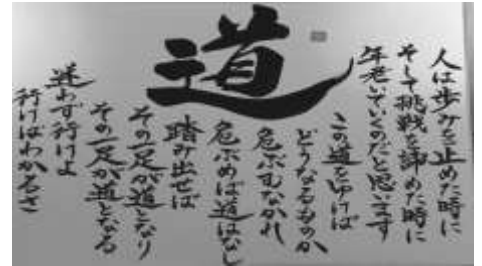 道
人は歩みを止めた時に
そして挑戦を諦めた時に
年老いていくのだと思います
この道をゆけば
どうなるものか
危ぶむなかれ
危ぶめば道はなし
踏み出せば
その一足が道となり
その一足が道となる
迷わず行けよ
行けばわかるさ